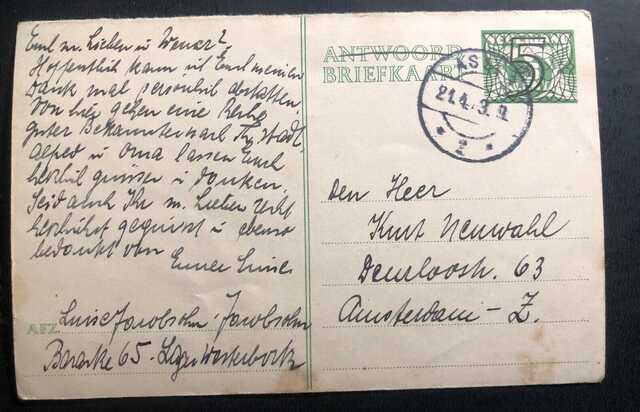 Eure m. Lieben u Wenar?
Hoffentlich kann ich Euch meinen
Dank mal persönlich abstatten
Von hier gehen eine Reihe
guter Bekannter
u Oma lassen Euch
herzlich grüssen u danken.
Seid auch Ihr m. Lieben recht
herzlichst gegrüsst u ebenso
bedankt von
Eurer Luise
AFZ. Luise Jacobsohn-Jacobsohn
Baracke 65 - Lager Westerbork
ANTWOORD
BRIEFKAART
5
21.4
2
den Heer
Kurt Neuwahl
Deurloostr. 63
Amsterdam - Z.